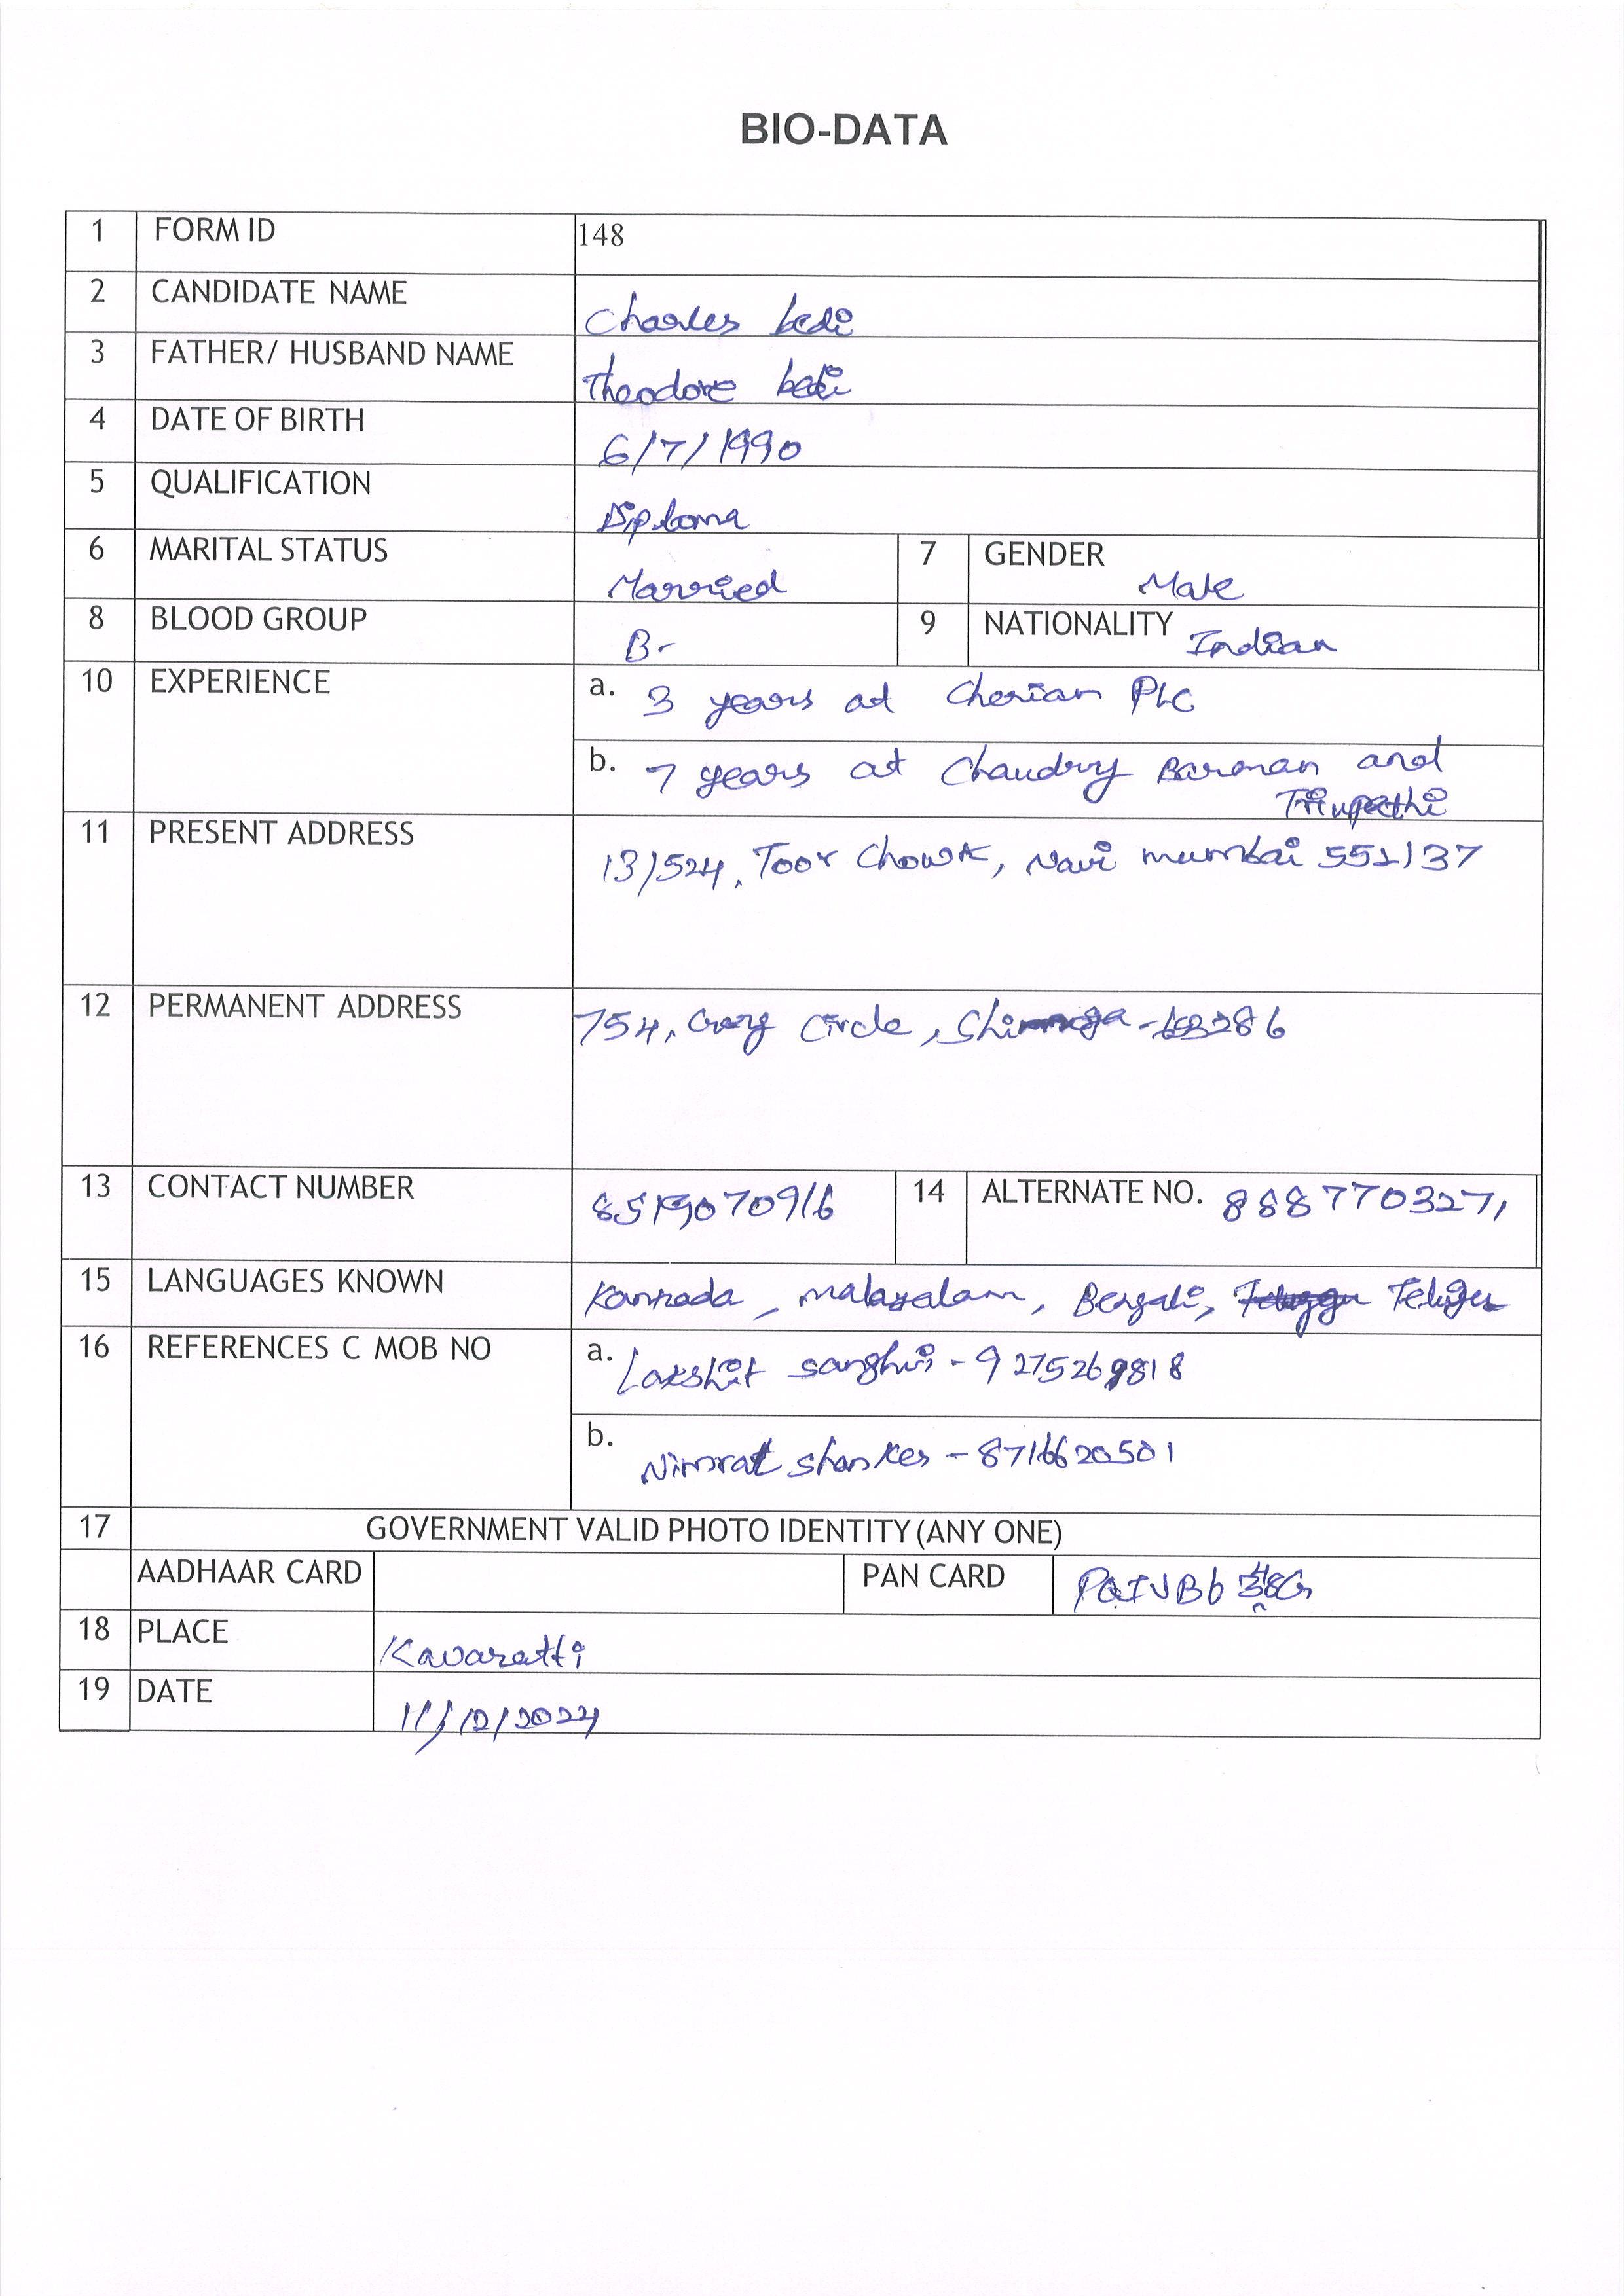 BIO-DATA
1 FORM ID 148
2 CANDIDATE NAME Charles bedi
3 FATHER/ HUSBAND NAME Theodore bedi
4 DATE OF BIRTH 6/7/1990
5 QUALIFICATION Diploma
6 MARITAL STATUS Married 7 GENDER Male
8 BLOOD GROUP B- 9 NATIONALITY Indian
10 EXPERIENCE a. 3 years at Cherian PLC
b. 7 years at Chaudry Barman and
Tripathi
11 PRESENT ADDRESS 13/524, Toor Chowk, Navi mumbai 551137
12 PERMANENT ADDRESS 754, Circle, Shimoga -
13 CONTACT NUMBER 8519070916 14 ALTERNATE NO. 8887703271
15 LANGUAGES KNOWN Kannada, malayalam, Bengali, Telugu
16 REFERENCES C MOB NO a. Lakshit sanghvi - 9275269818
b. Nimrat shanker - 8716620501
17 GOVERNMENT VALID PHOTO IDENTITY (ANY ONE)
AADHAAR CARD PAN CARD
18 PLACE Kavaratti
19 DATE 11/12/2024